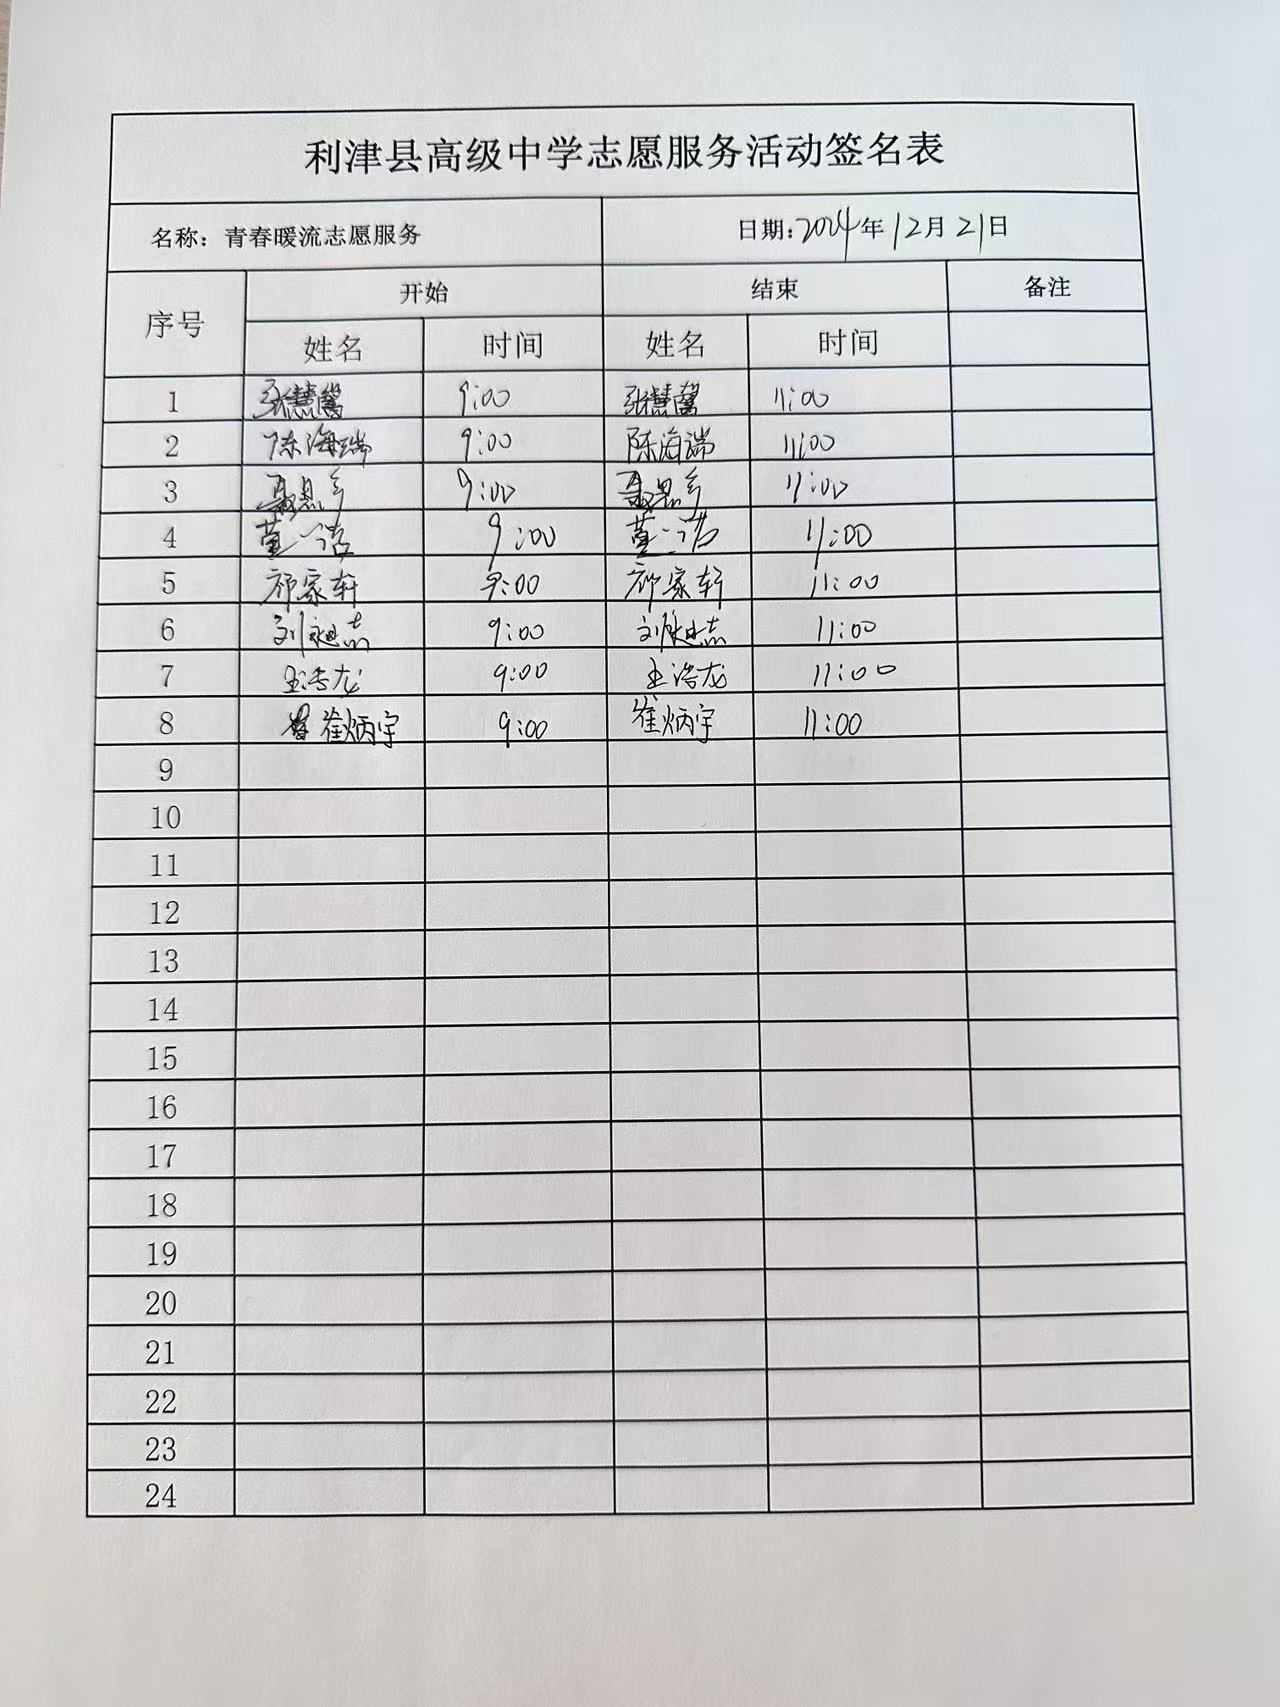 利津县高级中学志愿服务活动签名表
名称：青春暖流志愿服务 日期：2024年12月21日
序号 开始 结束 备注
姓名 时间 姓名 时间
1 张慧馨 9:00 张慧馨 11:00
2 陈海瑞 9:00 陈海瑞 11:00
3 聂思 9:00 聂思 11:00
4 董一诺 9:00 董一诺 11:00
5 祁家轩 9:00 祁家轩 11:00
6 刘志 9:00 刘志 11:00
7 王浩龙 9:00 王浩龙 11:00
8 崔炳宇 9:00 崔炳宇 11:00
9
10
11
12
13
14
15
16
17
18
19
20
21
22
23
24